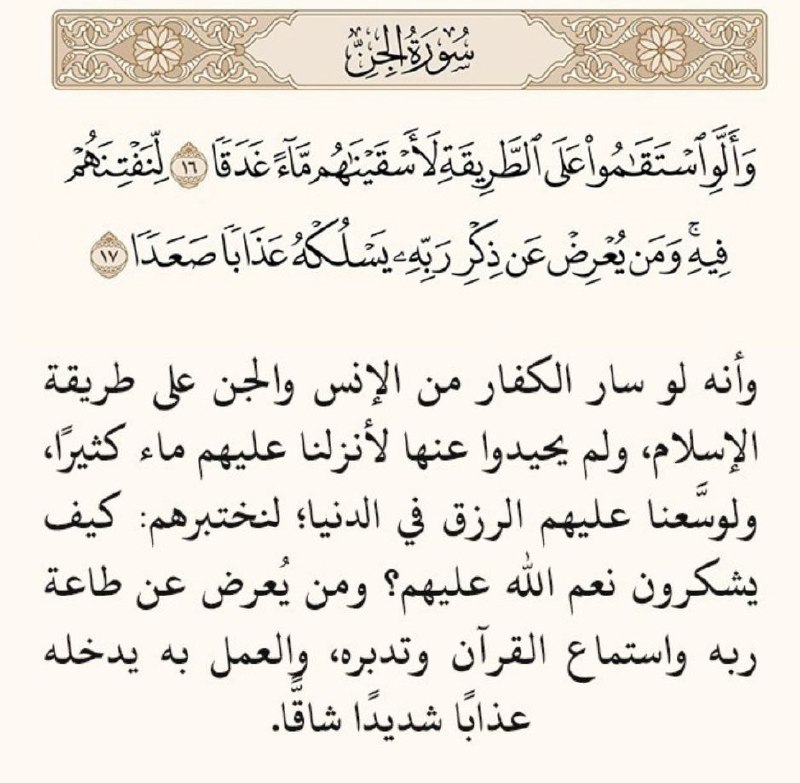 سُورَةُ الجِنِّ
وَأَلَّوِ ٱسْتَقَـٰمُوا۟ عَلَى ٱلطَّرِيقَةِ لَأَسْقَيْنَـٰهُم مَّآءً غَدَقًا ١٦ لِّنَفْتِنَهُمْ
فِيهِ ۚ وَمَن يُعْرِضْ عَن ذِكْرِ رَبِّهِۦ يَسْلُكْهُ عَذَابًا صَعَدًا ١٧
وأنه لو سار الكفار من الإنس والجن على طريقة
الإسلام، ولم يحيدوا عنها لأنزلنا عليهم ماء كثيرًا،
ولوسَّعنا عليهم الرزق في الدنيا؛ لنختبرهم: كيف
يشكرون نعم الله عليهم؟ ومن يُعرض عن طاعة
ربه واستماع القرآن وتدبره، والعمل به يدخله
عذابًا شديدًا شاقًّا.